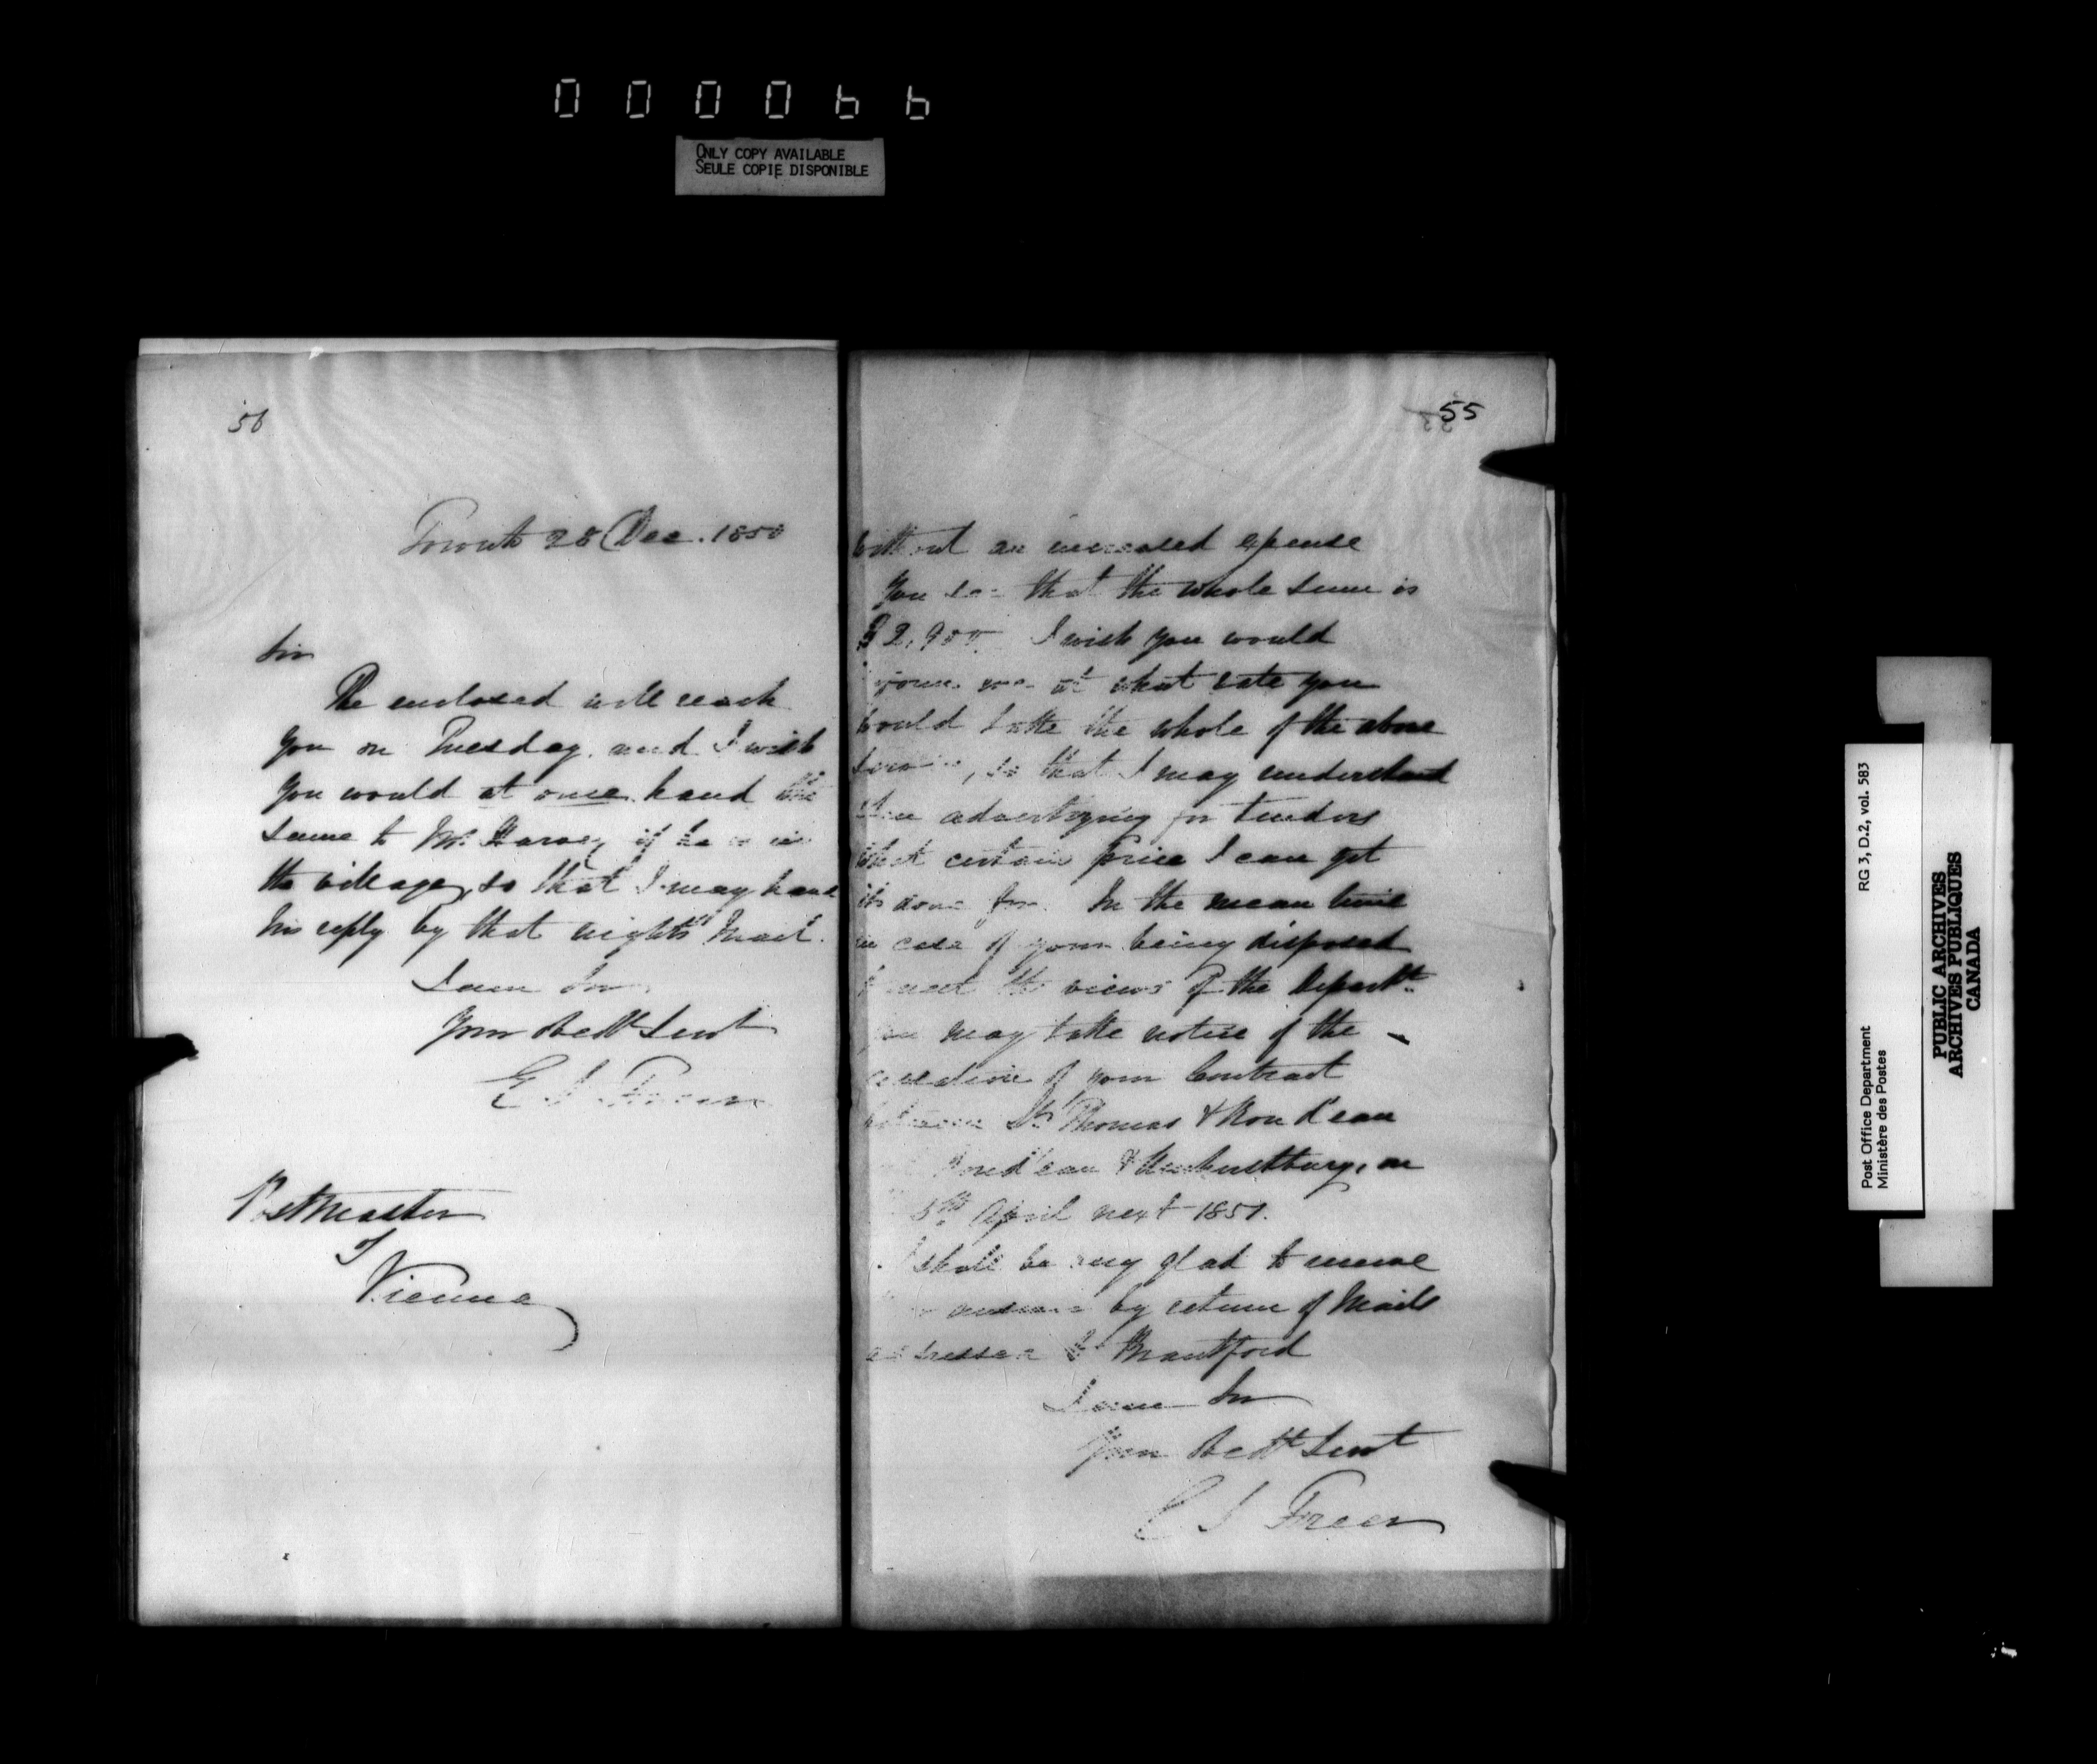 000066
ONLY COPY AVAILABLE
SEULE COPIE DISPONIBLE
56
Toronto 28 Dec. 1850
Sir
The enclosed will reach
you on Tuesday, and I wish
you would at once hand the
same to Mr. Harvey if he is in
the village, so that I may have
his reply by that night's Mail.
I am Sir
Your Obedt Servt
E S Freer
Postmaster
Vienna
55
without an increased epense
You see that the whole sum is
$2,900. I wish you would
me at what rate you
would take the whole of the above
service, so that I may understand
when advertizing for tenders
what certain price I can get
its done for. In the mean time
in case of your being disposed
to meet the views of the Departt.
you may take notice of the
of your Contract
between St Thomas & Rond'eau
Rond'eau & Amherstburg, on
5th April next 1851.
I shall be very glad to receive
answer by return of Mail
addressed to Brantford
I am Sir
Your Obedt Servt
E S Freer
Post Office Department
Ministère des Postes
RG 3, D.2, vol. 583
PUBLIC ARCHIVES
ARCHIVES PUBLIQUES
CANADA